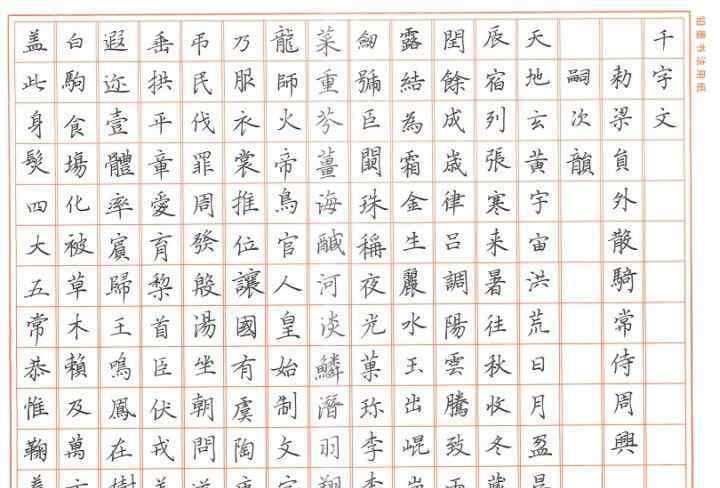 千字文
勑梁員外散騎常侍周興
嗣次韻
天地玄黄宇宙洪荒日月盈昃
辰宿列張寒来暑往秋收冬藏
閏餘成歳律吕調陽雲騰致雨
露結為霜金生麗水玉出崐岗
劎號巨闕珠稱夜光菓珎李柰
菜重芥薑海醎河淡鱗潛羽翔
龍師火帝鳥官人皇始制文字
乃服衣裳推位讓國有虞陶唐
弔民伐罪周發殷湯坐朝問道
垂拱平章愛育黎首臣伏戎羌
遐迩壹體率賓歸王鳴鳳在樹
白駒食場化被草木賴及萬方
盖此身髮四大五常恭惟鞠養